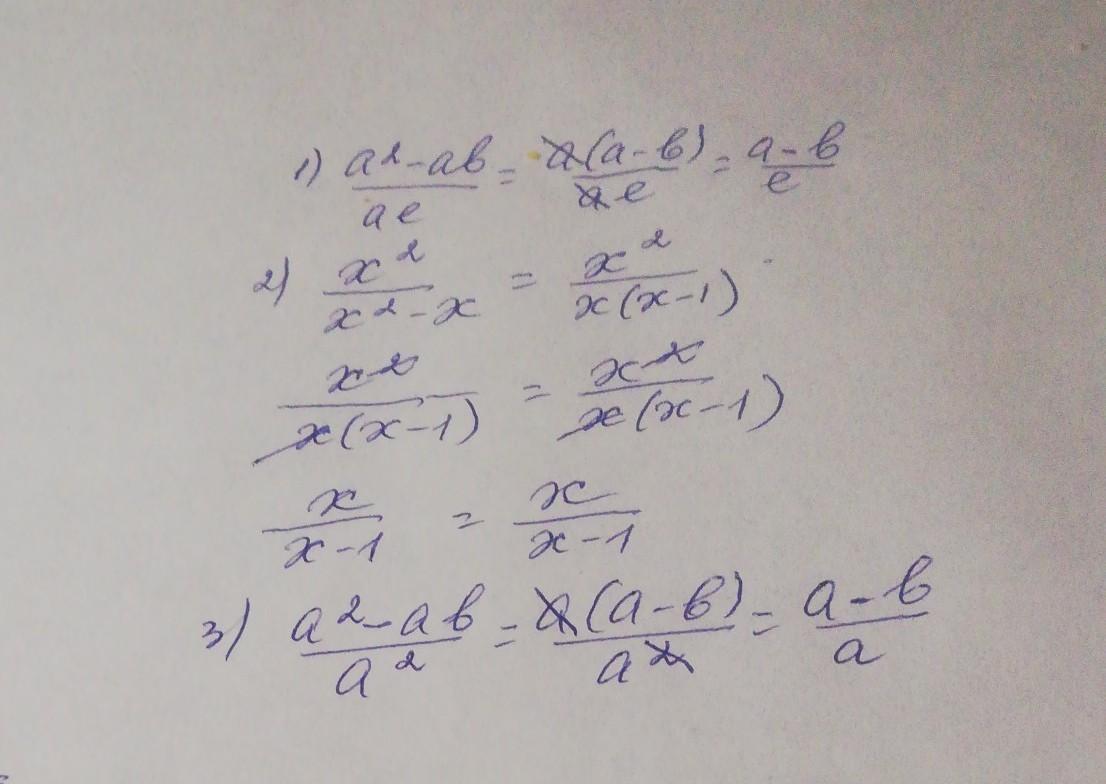 1) \frac{a^2-ab}{ae} = \frac{a(a-b)}{ae} = \frac{a-b}{e}
2) \frac{x^2}{x^2-x} = \frac{x^2}{x(x-1)}
\frac{x^2}{x(x-1)} = \frac{x^2}{x(x-1)}
\frac{x}{x-1} = \frac{x}{x-1}
3) \frac{a^2-ab}{a^2} = \frac{a(a-b)}{a^2} = \frac{a-b}{a}